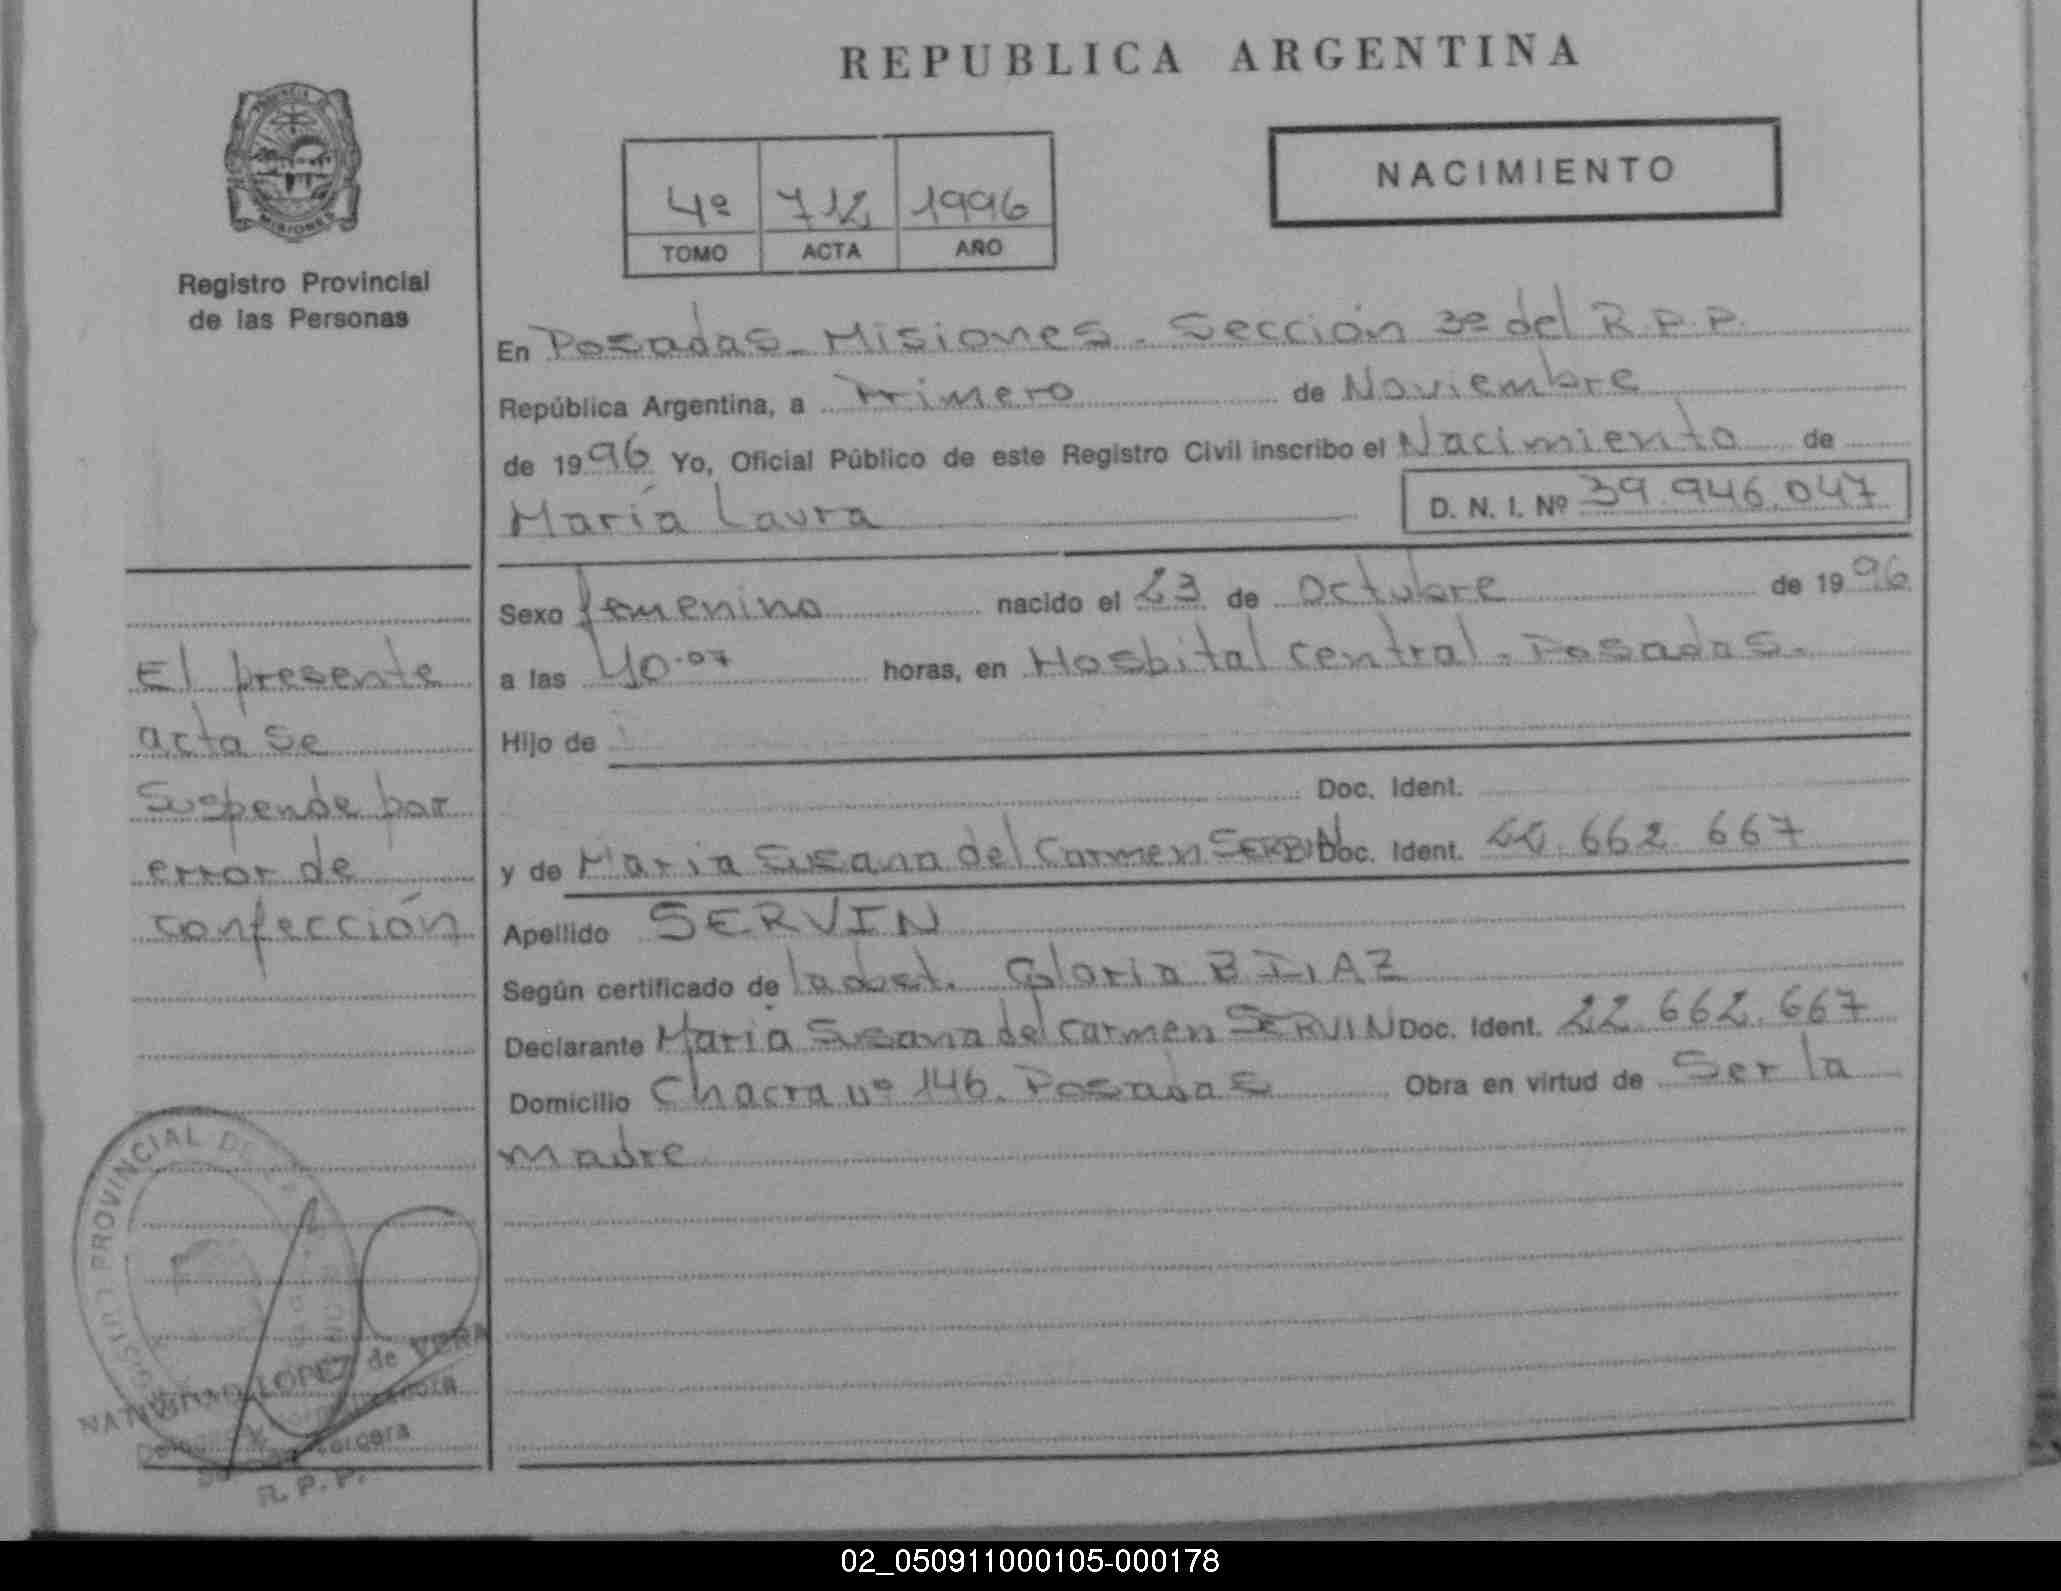 REPUBLICA ARGENTINA
PROVINCIA DE
MISIONES
Registro Provincial
de las Personas
4º 712 1996
TOMO ACTA AÑO
NACIMIENTO
En Posadas - Misiones - Sección 3º del R.P.P.
República Argentina, a Primero de Noviembre
de 1996 Yo, Oficial Público de este Registro Civil inscribo el Nacimiento de
María Laura D. N. I. Nº 39.946.047
Sexo femenino nacido el 23 de Octubre de 1996
a las 10.07 horas, en Hospital Central - Posadas.
Hijo de
Doc. Ident.
y de Maria Susana del Carmen SERBIN Doc. Ident. 22.662 667
Apellido SERVIN
Según certificado de la obst. Gloria
Declarante Maria Susana del Carmen SERVIN Doc. Ident. 22.662.667
Domicilio Chacra nº 146. Posadas Obra en virtud de Ser la
madre
El presente
acta se
Suspende por
error de
confección
PROVINCIAL DE
LOPEZ de VERA
tercera
R.P.P.
02_050911000105-000178